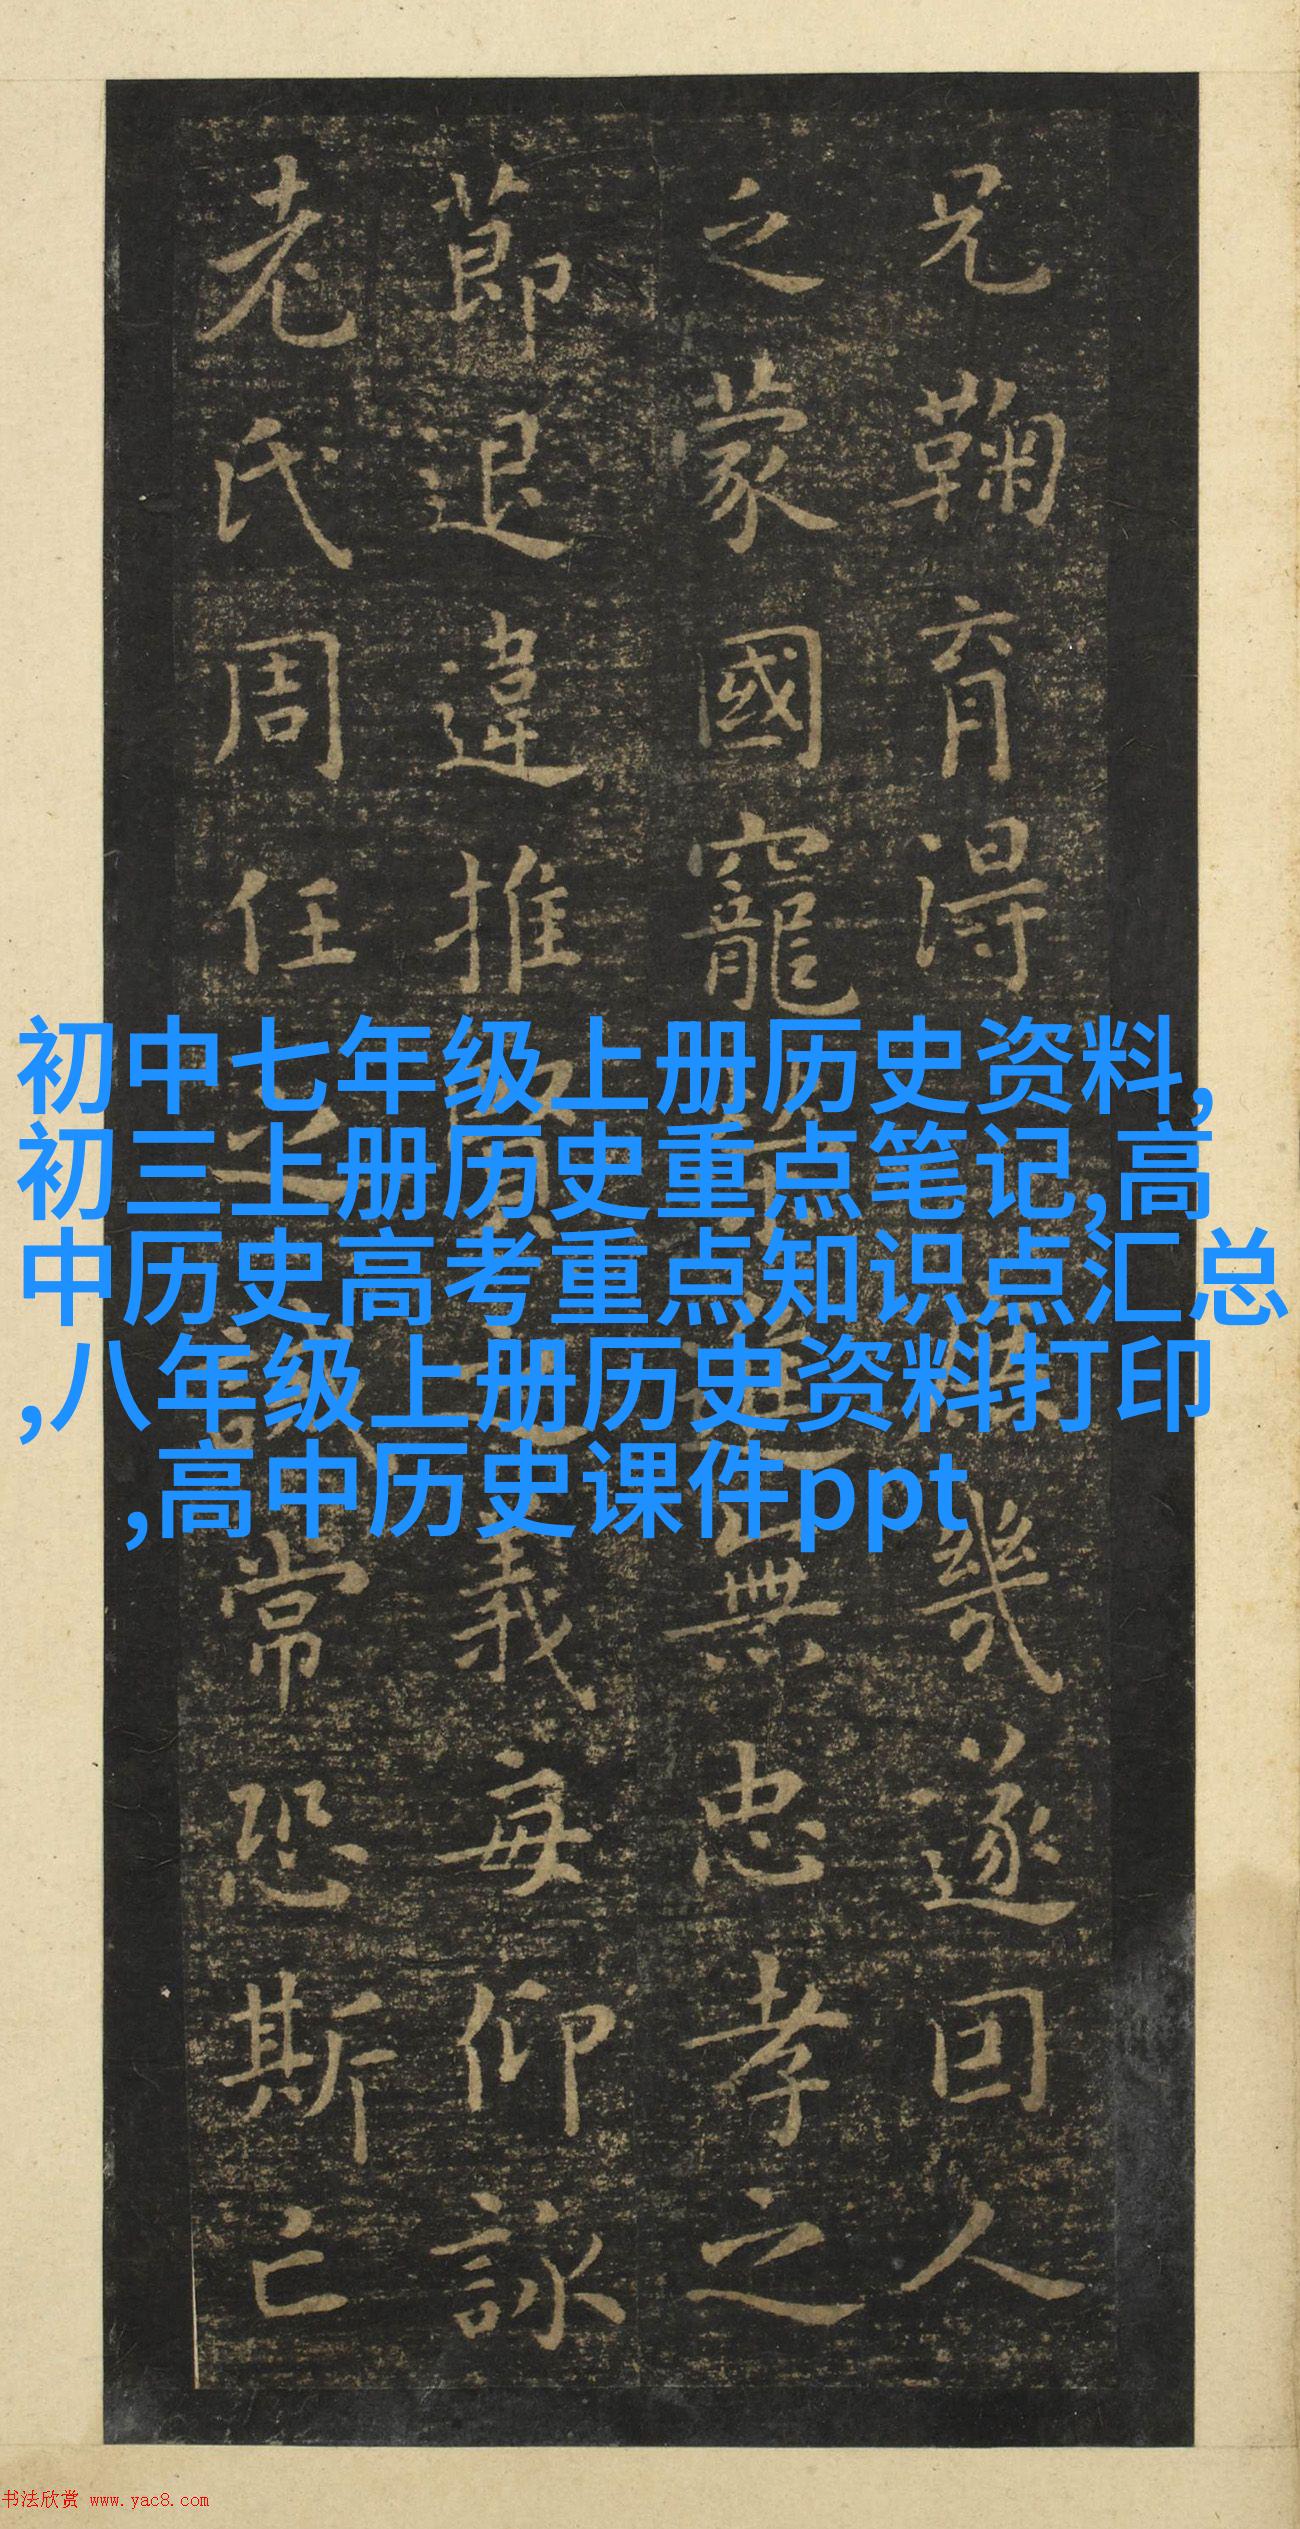 兄鞠育得幾遂囙人
之蒙國寵進無忠孝之
節退違推賢之義每仰詠
老氏周任之誡常恐斯亡
初中七年级上册历史资料,
初三上册历史重点笔记,高
中历史高考重点知识点汇总
,八年级上册历史资料打印
,高中历史课件ppt
书法欣赏 www.yac8.com